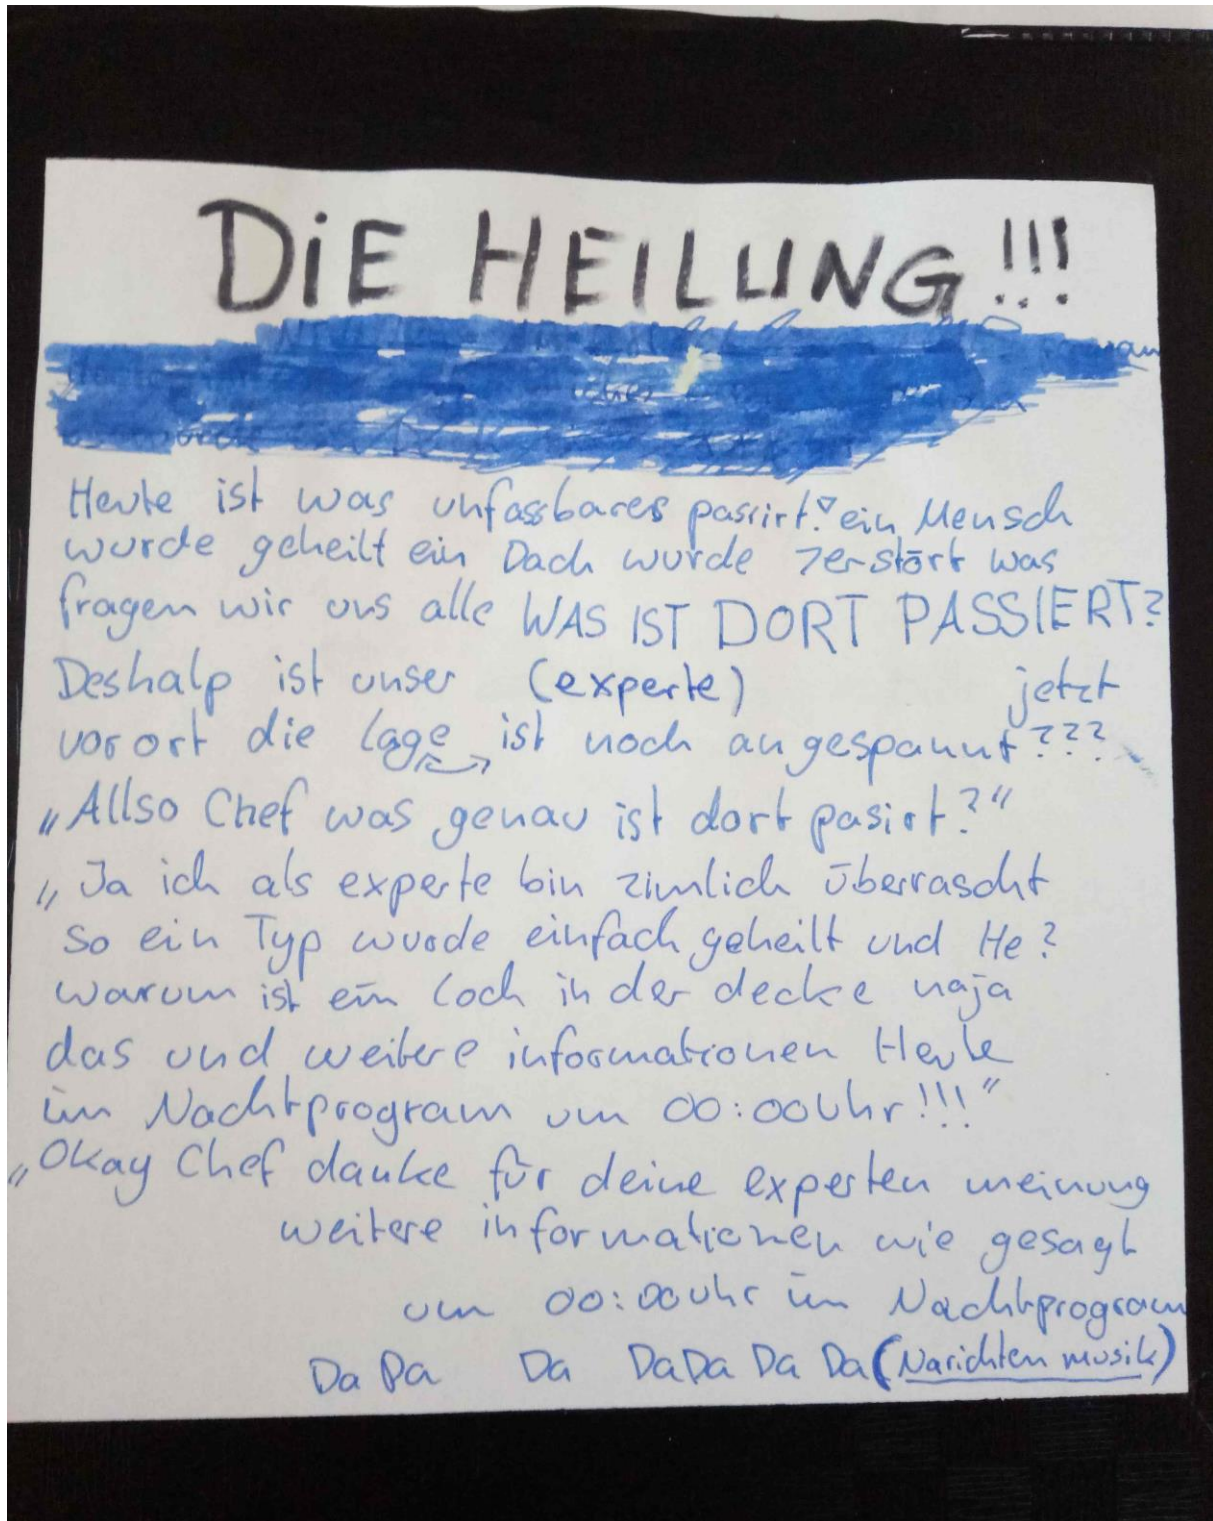 DiE HEILUNG!!!
Heute ist was unfassbares passirt! ein Mensch
wurde geheilt ein Dach wurde zerstört was
fragen wir uns alle WAS IST DORT PASSIERT?
Deshalp ist unser (experte) jetzt
vorort die lage ist noch angespannt???
„Allso Chef was genau ist dort pasirt?“
„Ja ich als experte bin zimlich überrascht
so ein Typ wurde einfach geheilt und He?
warum ist ein Loch in der decke naja
das und weitere informationen Heute
im Nachtprogram um 00:00Uhr!!!“
„Okay Chef danke für deine experten meinung
weitere informationen wie gesagt
um 00:00uhr im Nachtprogram
Da Da Da DaDa Da Da (Narichten musik)